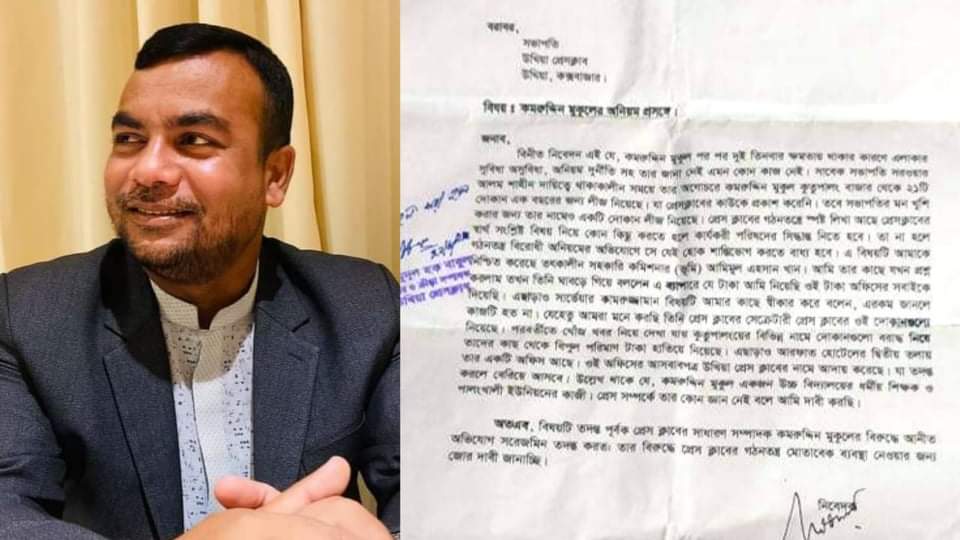 বরাবর,
সভাপতি
উখিয়া প্রেসক্লাব
উখিয়া, কক্সবাজার।
বিষয় : কমরুদ্দিন মুকুলের অনিয়ম প্রসঙ্গে।
জনাব,
বিনীত নিবেদন এই যে, কমরুদ্দিন মুকুল পর পর দুই তিনবার ক্ষমতায় থাকার কারণে এলাকার
সুবিধা অসুবিধা, অনিয়ম দুর্নীতি সহ তার জানা নেই এমন কোন কাজ নেই। সাবেক সভাপতি সরওয়ার
আলম শাহীন দায়িত্বে থাকাকালীন সময়ে তার অগোচরে কমরুদ্দিন মুকুল কুতুপালং বাজার থেকে ২১টি
দোকান এক বছরের জন্য লীজ নিয়েছে। যা প্রেসক্লাবের কাউকে প্রকাশ করেনি। তবে সভাপতির মন খুশি
করার জন্য তার নামেও একটি দোকান লীজ নিয়েছে। প্রেস ক্লাবের গঠনতন্ত্রে স্পষ্ট লিখা আছে প্রেসক্লাবের
স্বার্থ সংশ্লিষ্ট বিষয় নিয়ে কোন কিছু করতে হলে কার্যকরী পরিষদের সিদ্ধান্ত নিতে হবে। তা না হলে
গঠনতন্ত্র বিরোধী অনিয়মের অভিযোগে সে যেই হোক শাস্তিভোগ করতে বাধ্য হবে। এ বিষয়টি আমাকে
নিশ্চিত করেছে তৎকালীন সহকারি কমিশনার (ভূমি) আমিমুল এহসান খান। আমি তার কাছে যখন প্রশ্ন
করলাম তখন তিনি ঘাবড়ে গিয়ে বললেন এ ব্যাপারে যে টাকা আমি নিয়েছি ওই টাকা অফিসের সবাইকে
দিয়েছি। এছাড়াও সার্ভেয়ার কামরুজ্জামান বিষয়টি আমার কাছে স্বীকার করে বলেন, এরকম জানলে
কাজটি হত না। যেহেতু আমরা মনে করছি তিনি প্রেস ক্লাবের সেক্রেটারী প্রেস ক্লাবের ওই দোকানগুলো
নিয়েছে। পরবর্তীতে খোঁজ খবর নিয়ে দেখা যায় কুতুপালংয়ের বিভিন্ন নামে দোকানগুলো বরাদ্ধ নিয়ে
তাদের কাছ থেকে বিপুল পরিমাণ টাকা হাতিয়ে নিয়েছে। এছাড়াও আরফাত হোটেলের দ্বিতীয় তলায়
তার একটি অফিস আছে। ওই অফিসের আসবাবপত্র উখিয়া প্রেস ক্লাবের নামে আদায় করেছে। যা তদন্ত
করলে বেরিয়ে আসবে। উল্লেখ থাকে যে, কমরুদ্দিন মুকুল একজন উচ্চ বিদ্যালয়ের ধর্মীয় শিক্ষক ও
পালংখালী ইউনিয়নের কাজী। প্রেস সম্পর্কে তার কোন জ্ঞান নেই বলে আমি দাবী করছি।
অতএব, বিষয়টি তদন্ত পূর্বক প্রেস ক্লাবের সাধারণ সম্পাদক কমরুদ্দিন মুকুলের বিরুদ্ধে আনীত
অভিযোগ সরেজমিন তদন্ত করতঃ তার বিরুদ্ধে প্রেস ক্লাবের গঠনতন্ত্র মোতাবেক ব্যবস্থা নেওয়ার জন্য
জোর দাবী জানাচ্ছি।
নিবেদক
ও ক্রীড়া সম্পাদক
উখিয়া প্রেসক্লাব